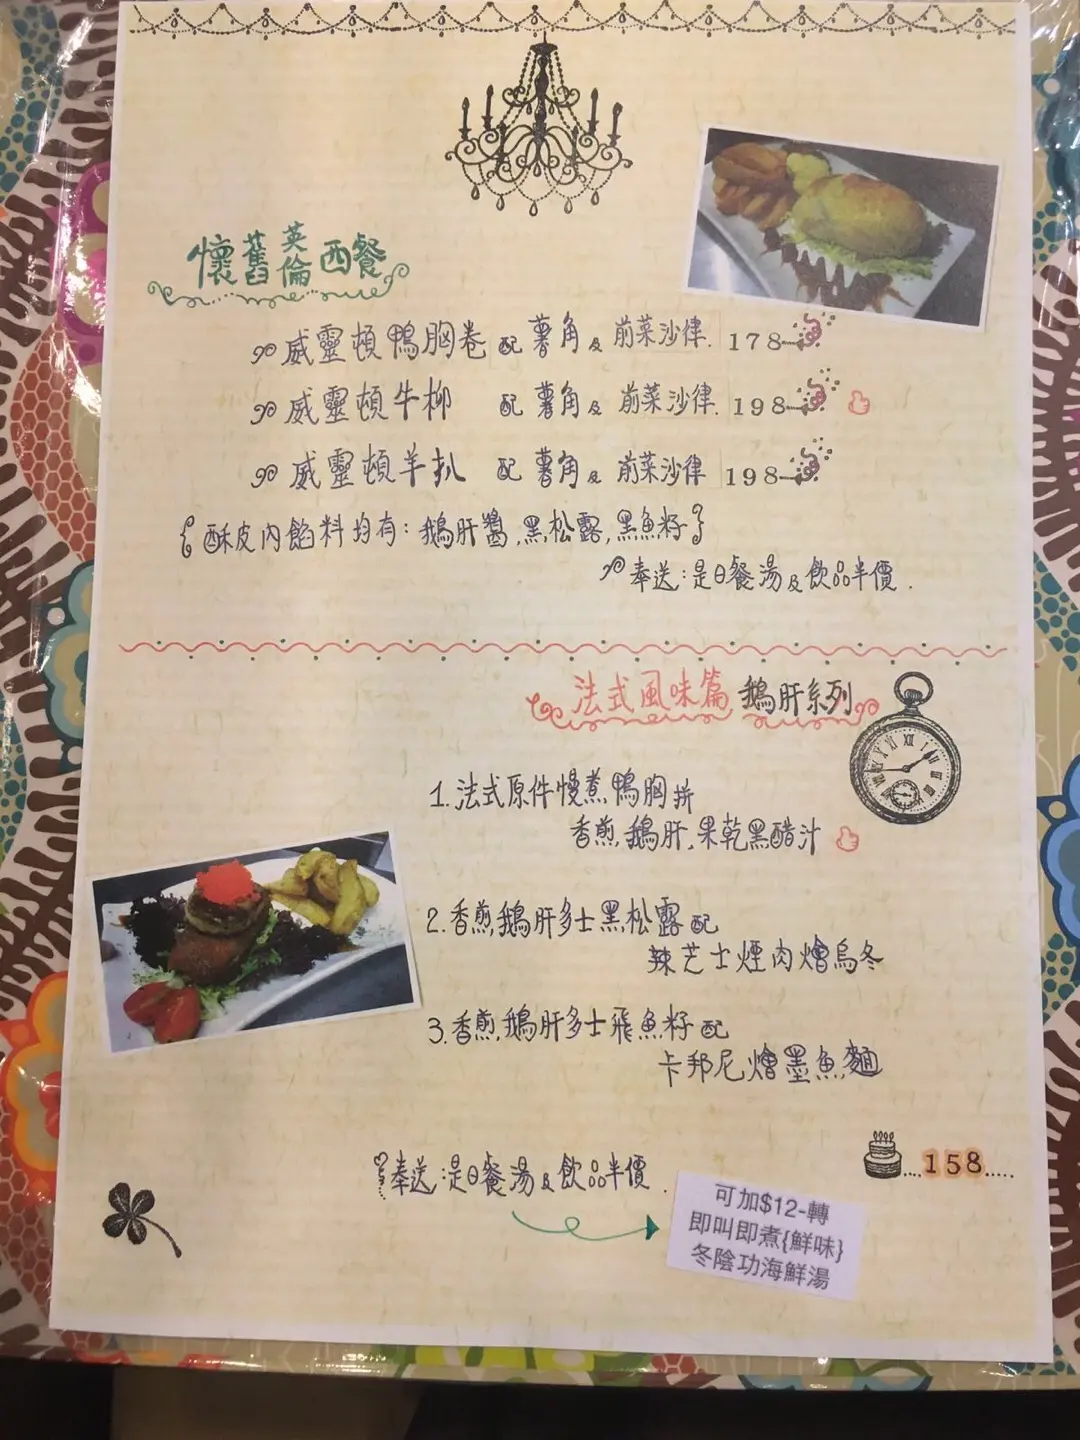 懷舊英倫西餐
威靈頓鴨胸卷 配 薯角 & 前菜沙律. 178
威靈頓牛柳 配 薯角 & 前菜沙律. 198
威靈頓羊扒 配 薯角 & 前菜沙律 198
{酥皮內餡料均有: 鵝肝醬, 黑松露, 黑魚籽}
奉送:是日餐湯 & 飲品半價.
法式風味篇 鵝肝系列
1.法式原件慢煮鴨胸拚
香煎鵝肝,果乾黑醋汁
2.香煎鵝肝多士黑松露配
辣芝士煙肉燴烏冬
3.香煎鵝肝多士飛魚籽配
卡邦尼燴墨魚麵
奉送:是日餐湯 & 飲品半價.
...158.....
可加$12-轉
即叫即煮{鮮味}
冬陰功海鮮湯